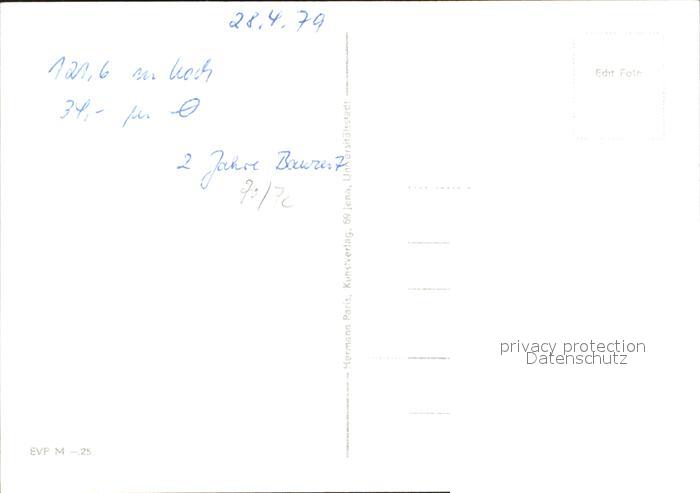 28.4.79
121,6 m hoch
34,- m ⌀
2 Jahre Bauzeit
70/72
Hermann Paris, Kunstverlag, 69 Jena, Universitätsstadt
Echt Foto
privacy protection
Datenschutz
EVP M -.25